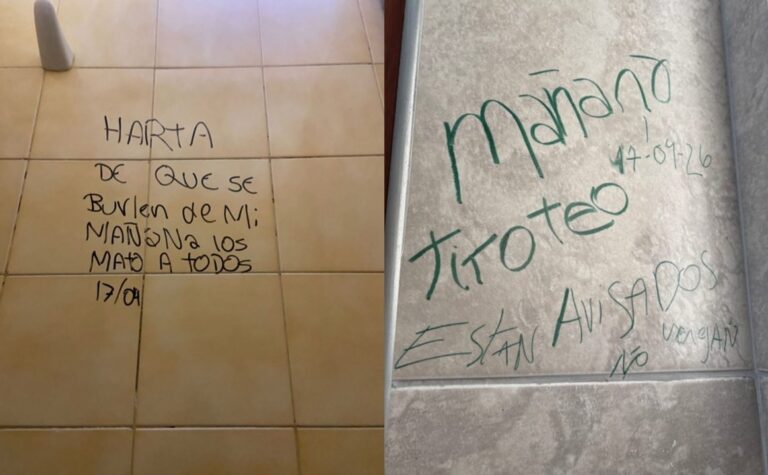 HARTA
DE QUE SE
Burlen de Mi
MAÑANa los
MATO A TODOS
17/04
Mañana
17-04-26
TiroTEO
EsTAN AVISADOS
NO vengAN